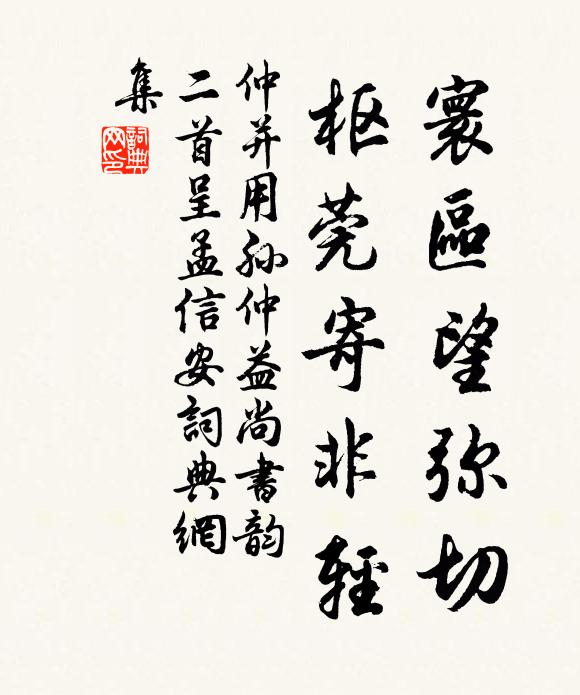 寰區望弥切
枢莞寄非輕
仲并用孙仲益尚書韵
二首呈孟信安詞典網
集
詞典网印